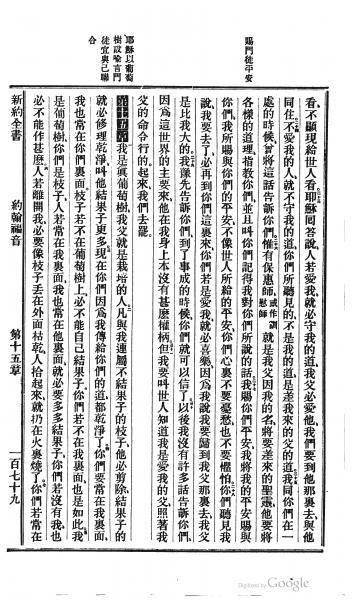 賜門徒平安
耶穌以葡萄
樹設喻言門
徒宜與己聯
合
看、不顯現給世人看、耶穌回答說、人若愛我、就必守我的道、我父必愛他、我們要到他那裏去、與他
同住、不愛我的人、就不守我的道、你們所聽見的、不是我的道、是差我來的父的道、我同你們在一
處的時候、曾將這話告訴你們、惟有保惠師、或作訓慰師就是我父因我的名、將要差來的聖靈、他要將
各樣的道理指教你們、並且叫你們記得我對你們所說的話、我賜你們平安、我將我的平安賜與
你們、我所賜與你們的平安、不像世人所給的平安、你們心裏不要憂愁、也不要懼怕、你們聽見我
說、我要去了、必再到你們這裏來、你們若是愛我、就必喜樂、因爲我說、我要歸到我父那裏去、我父
是比我大的、我豫先告訴你們、到了事成的時候、你們就可以信了、以後我沒有許多話告訴你們、
因爲這世界的主要來、他在我身上本沒有甚麼權柄、但我要叫世人知道我是愛我的父、照著我
父的命令行的、起來、我們去罷、
第十五章 我是真葡萄樹、我父就是栽培的人、凡與我連屬不結果子的枝子、他必剪除、結果子的、
就必修理乾淨、叫他結果子更多、現在你們因爲我傳給你們的道、都乾淨了、你們要常在我裏面、
我也當在你們裏面、枝子若不在葡萄樹上、必不能自己結果子、你們若不在我裏面、也是如此、我
是葡萄樹、你們是枝子、人若常在我裏面、我也常在他裏面、就必要多多結果子、你們若沒有我、也
必不能作甚麼、人若離開我、必要像枝子丟在外面枯乾、人拾起來、就扔在火裏燒了、你們若常在
新約全書 約翰福音 第十五章 一百七十九
Digitized by Google